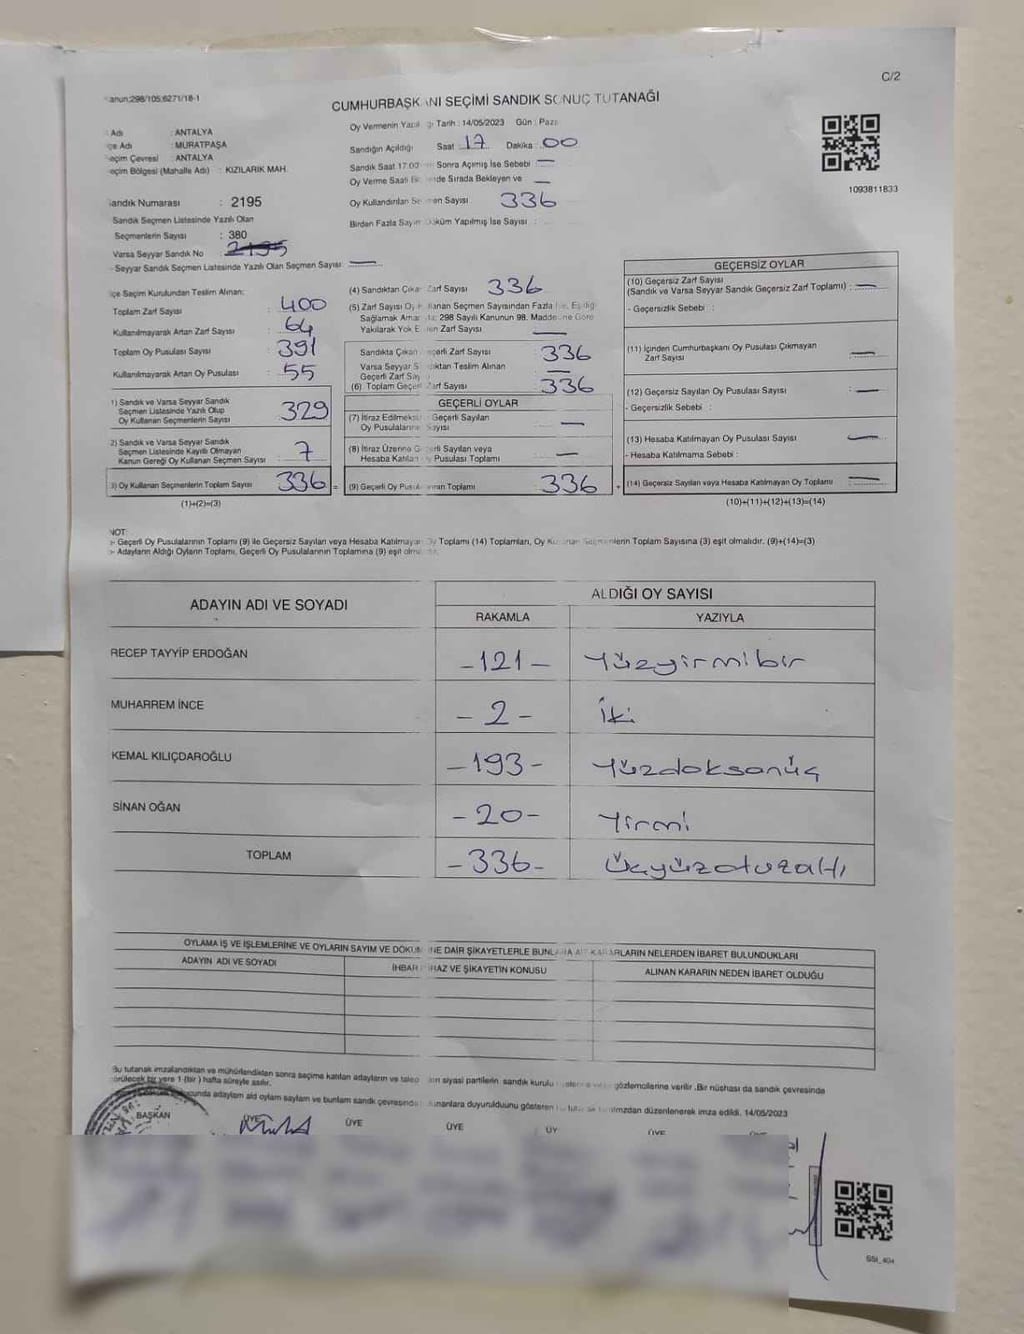 C/2
anun:298/105;6271/18-1
CUMHURBAŞKANI SEÇİMİ SANDIK SONUÇ TUTANAĞI
Adı : ANTALYA
çe Adı : MURATPAŞA
eçim Çevresi : ANTALYA
eçim Bölgesi (Mahalle Adı) : KIZILARIK MAH.
Oy Vermenin Yapıl ğı Tarih : 14/05/2023 Gün : Paza
Sandığın Açıldığı Saat : 17 Dakika : 00
Sandık Saat 17.00 Sonra Açımış İse Sebebi —
Oy Verme Saati nde Sırada Bekleyen ve —
Oy Kullandırılan Se men Sayısı 336
Birden Fazla Sayım Döküm Yapılmış İse Sayısı :
1093811833
andık Numarası : 2195
Sandık Seçmen Listesinde Yazılı Olan
Seçmenlerin Sayısı : 380
Varsa Seyyar Sandık No : 2195
- Seyyar Sandık Seçmen Listesinde Yazılı Olan Seçmen Sayısı —
lçe Seçim Kurulundan Teslim Alınan:
Toplam Zarf Sayısı : 400
Kullanılmayarak Artan Zarf Sayısı : 64
Toplam Oy Pusulası Sayısı : 391
Kullanılmayarak Artan Oy Pusulası : 55
1) Sandık ve Varsa Seyyar Sandık
Seçmen Listesinde Yazılı Olup
Oy Kullanan Seçmenlerin Sayısı 329
2) Sandık ve Varsa Seyyar Sandık
Seçmen Listesinde Kayıtlı Olmayan
Kanun Gereği Oy Kullanan Seçmen Sayısı 7
3) Oy Kullanan Seçmenlerin Toplam Sayısı 336 =
(1)+(2)=(3)
(4) Sandıktan Çıkan Zarf Sayısı 336
(5) Zarf Sayısı Oy Kullanan Seçmen Sayısından Fazla İse, Eşitliği
Sağlamak Ama 298 Sayılı Kanunun 98. Maddesine Göre
Yakılarak Yok E en Zarf Sayısı —
Sandıkta Çıkan Geçerli Zarf Sayısı 336
Varsa Seyyar S ktan Teslim Alınan
Geçerli Zarf Say —
(6) Toplam Geçerli Zarf Sayısı 336
GEÇERLİ OYLAR
(7) İtiraz Edilmeksi Geçerli Sayılan
Oy Pusulaların Sayısı —
(8) İtiraz Üzerine Geçerli Sayılan veya
Hesaba Katılan Oy Pusulası Toplamı —
(9) Geçerli Oy Pusul rının Toplamı 336 +
GEÇERSİZ OYLAR
(10) Geçersiz Zarf Sayısı
(Sandık ve Varsa Seyyar Sandık Geçersiz Zarf Toplamı) : —
- Geçersizlik Sebebi :
(11) İçinden Cumhurbaşkanı Oy Pusulası Çıkmayan
Zarf Sayısı —
(12) Geçersiz Sayılan Oy Pusulası Sayısı —
- Geçersizlik Sebebi :
(13) Hesaba Katılmayan Oy Pusulası Sayısı —
- Hesaba Katılmama Sebebi :
(14) Geçersiz Sayılan veya Hesaba Katılmayan Oy Toplamı —
(10)+(11)+(12)+(13)=(14)
NOT:
➢ Geçerli Oy Pusulalarının Toplamı (9) ile Geçersiz Sayılan veya Hesaba Katılmayan Oy Toplamı (14) Toplamları, Oy Kullanan Seçmenlerin Toplam Sayısına (3) eşit olmalıdır. (9)+(14)=(3)
➢ Adayların Aldığı Oyların Toplamı, Geçerli Oy Pusulalarının Toplamına (9) eşit olmalıdır.
ADAYIN ADI VE SOYADI
ALDIĞI OY SAYISI
RAKAMLA YAZIYLA
RECEP TAYYİP ERDOĞAN -121- Yüzyirmibir
MUHARREM İNCE -2- İki
KEMAL KILIÇDAROĞLU -193- Yüzdoksanüç
SİNAN OĞAN -20- Yirmi
TOPLAM -336- Üçyüzotuzaltı
OYLAMA İŞ VE İŞLEMLERİNE VE OYLARIN SAYIM VE DÖKÜMÜNE DAİR ŞİKAYETLERLE BUNLARA AİT KARARLARIN NELERDEN İBARET BULUNDUKLARI
ADAYIN ADI VE SOYADI İHBAR İTİRAZ VE ŞİKAYETİN KONUSU ALINAN KARARIN NEDEN İBARET OLDUĞU
Bu tutanak imzalandıktan ve mühürlendikten sonra seçime katılan adayların ve talep siyasi partilerin sandık kurulu gözlemcilerine verilir. Bir nüshası da sandık çevresinde
görülecek bir yere 1 (bir) hafta süreyle asılır.
düzenlenerek imza edildi. 14/05/2023
BAŞKAN ÜYE ÜYE ÜYE ÜY ÜYE